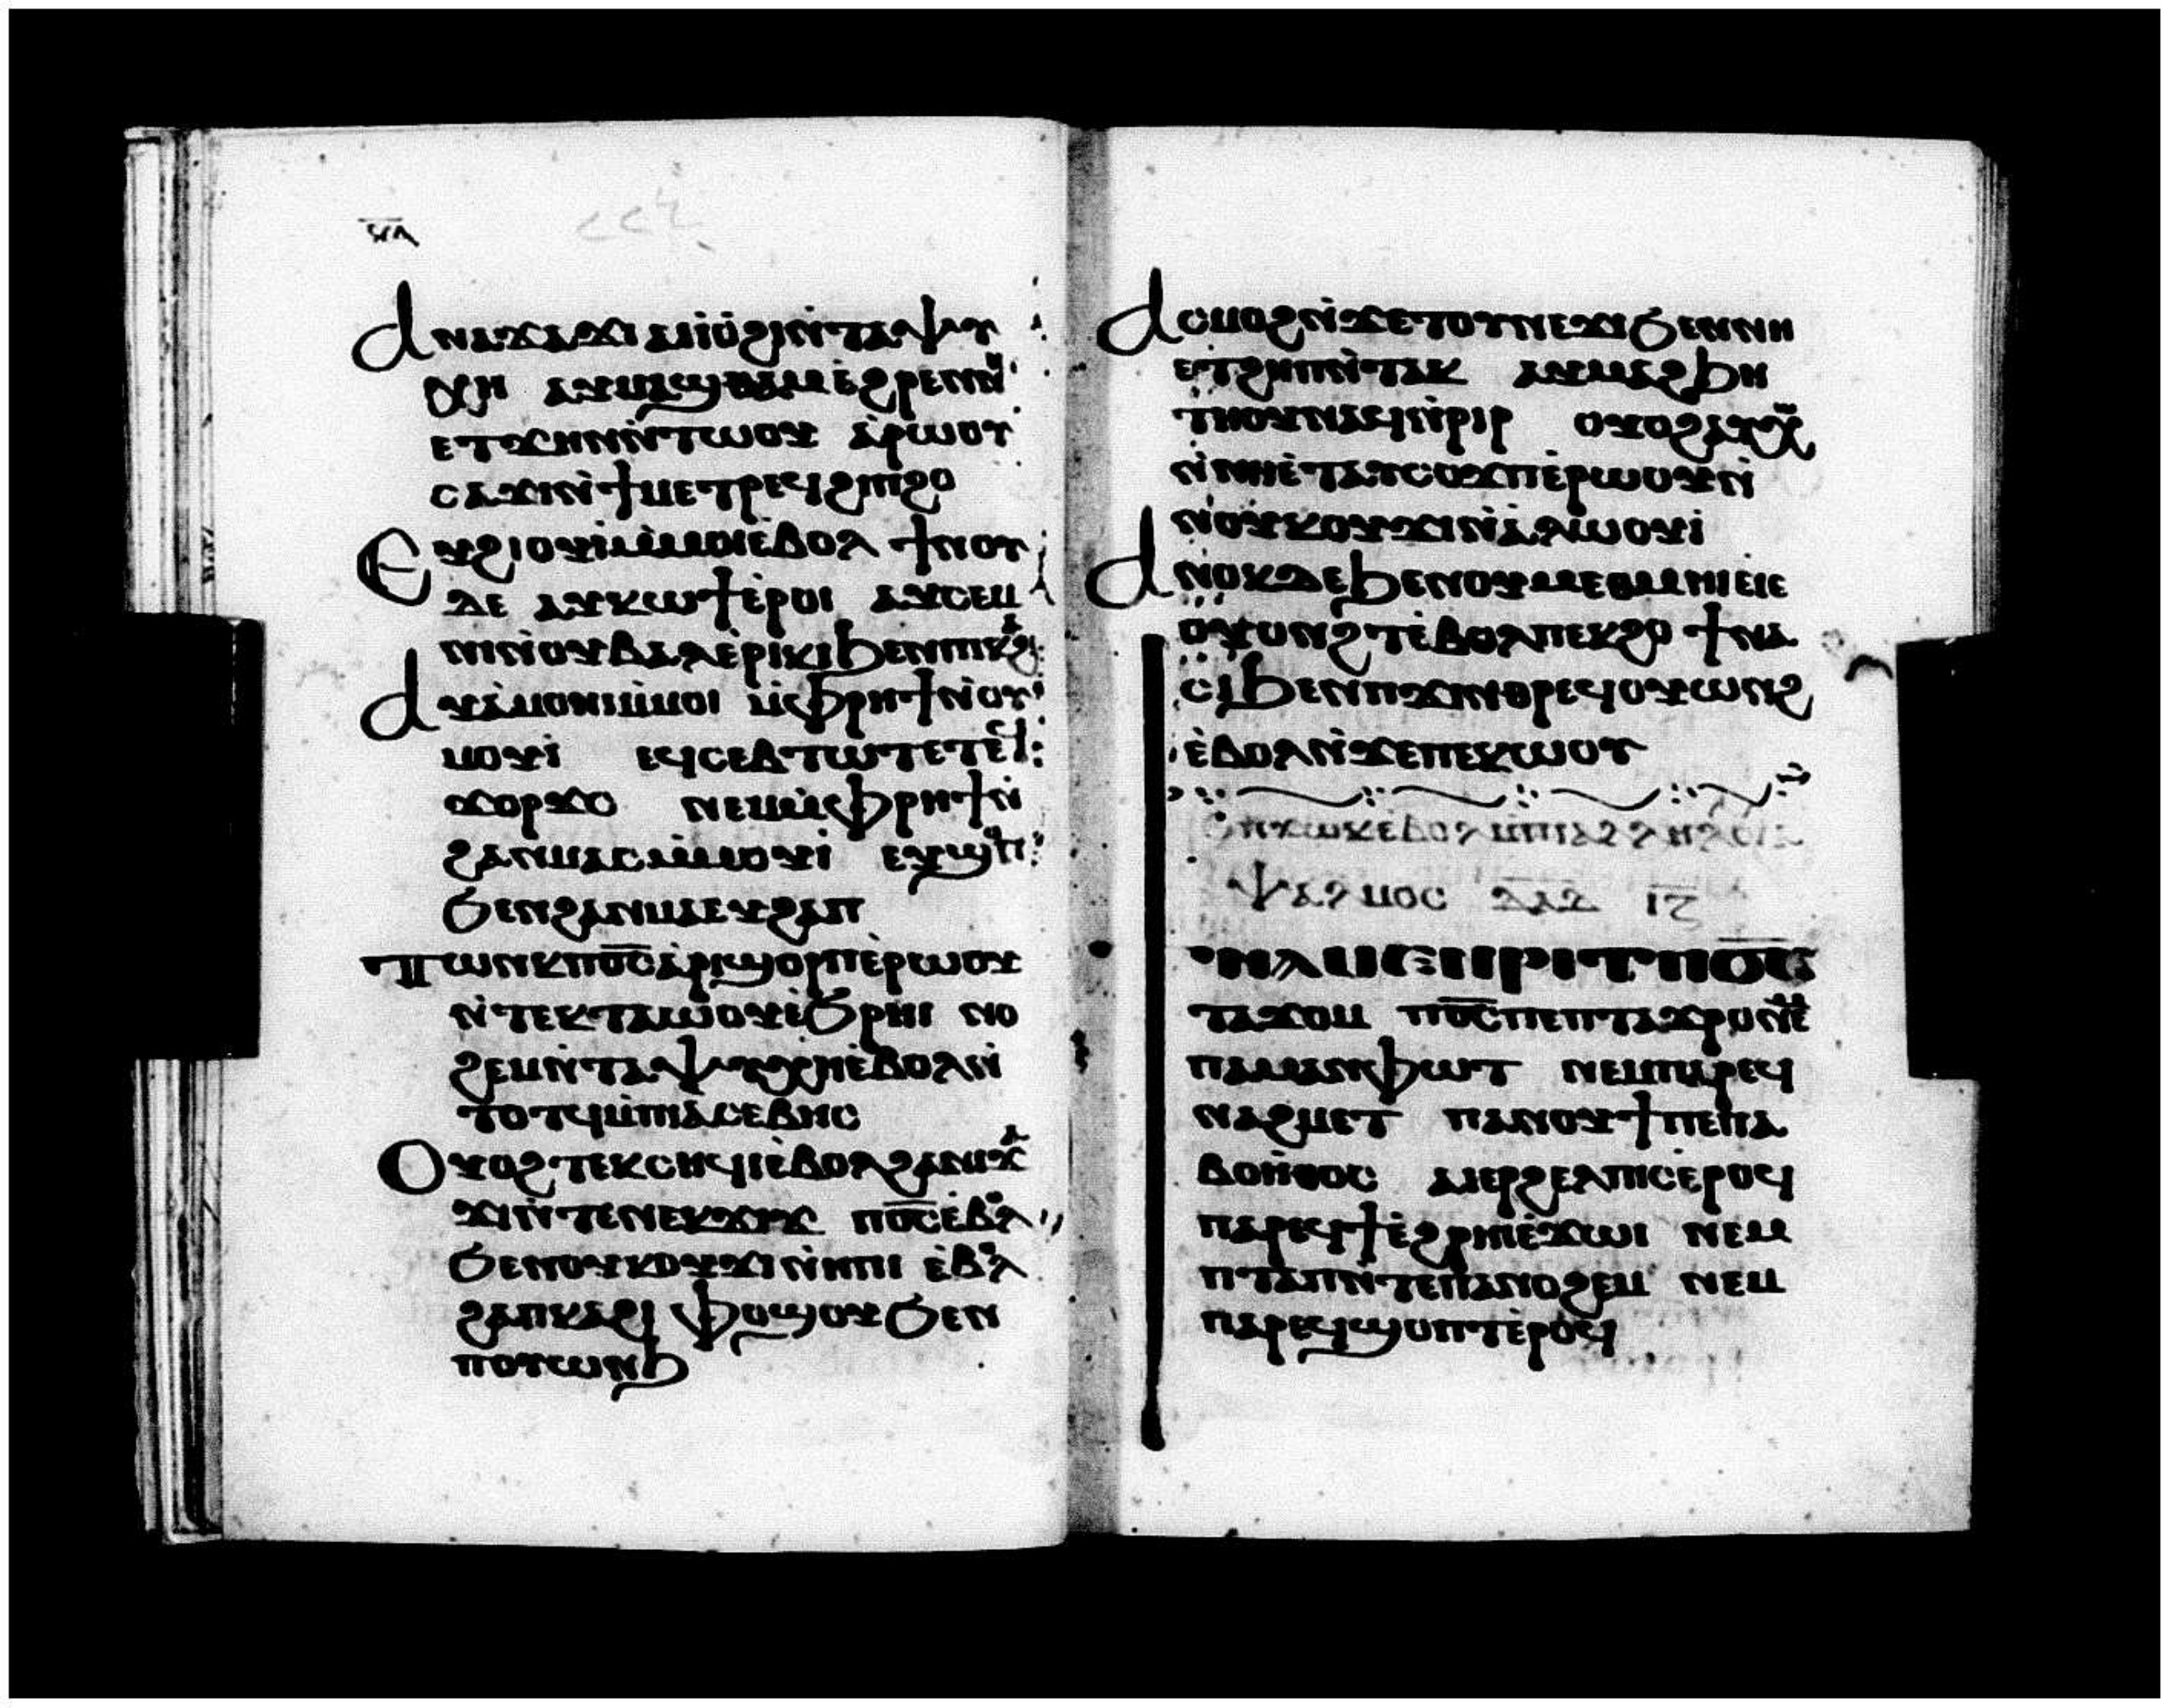 ⲁⲛⲁϫⲁϫⲓ ⲁⲙⲟ̀ϩⲓⲛ̀ⲧⲁⲯⲩ
ⲭⲏ ⲁⲩⲙⲁϣⲑⲁⲙⲉ̀ϩⲣⲉⲛⲛ
ⲉⲧϫⲏⲛⲛ̀ⲧⲱⲟⲩ ⲁ̀ⲣⲱⲟⲩ
ⲥⲁϫⲓⲛ̀ϯⲙⲉⲧⲣⲉϥϩⲓⲡϩⲟ
ⲉⲩϩⲓⲟⲩⲓ̀ⲙ̀ⲙⲟⲓⲉ̀ⲃⲟⲗ ϯⲛⲟⲩ
ⲇⲉ ⲁⲩⲕⲱϯⲉ̀ⲣⲟⲓ ⲁⲩⲥⲉⲙ
ⲛⲓⲛ̀ⲟⲩⲃⲁⲗⲉ̀ⲣⲓⲕⲓϧⲉⲛⲡⲓⲕⲁϩⲓ
ⲁⲩⲁ̀ⲙⲟⲛⲓⲙ̀ⲙⲟⲓ ⲙ̀ⲫⲣⲏϯⲛ̀ⲟⲩ
ⲙⲟⲩⲓ̀ ⲉϥⲥⲉⲃⲧⲱⲧⲉ
ϫⲟⲣϫⲥ ⲛⲉⲙⲙ̀ⲫⲣⲏϯⲛ̀
ϩⲁⲛⲙⲁⲥⲙ̀ⲙⲟⲩⲓ̀ ⲉⲩϣⲟⲡ
ϧⲉⲛϩⲁⲛⲙⲁⲉⲩϩⲁⲡ
ⲧⲱⲛⲕⲡⲟ̅ⲥ̅ⲁ̀ⲣⲓϣⲟⲣⲡⲉ̀ⲣⲱⲟⲩ
ⲛ̀ⲧⲉⲕⲧⲁⲱⲟⲩⲉ̀ϧⲣⲏⲓ ⲛⲟ
ϩⲉⲙⲛ̀ⲧⲁⲯⲩⲭⲏⲉ̀ⲃⲟⲗⲛ̀
ⲧⲟⲧϥⲙ̀ⲡⲓⲁ̀ⲥⲉⲃⲏⲥ
ⲟⲩⲟϩⲧⲉⲕⲥⲏϥⲓⲉ̀ⲃⲟⲗϩⲁⲛⲓϫⲁ
ϫⲓⲛ̀ⲧⲉⲛⲉⲕϫⲓϫ ⲡⲟ̅ⲥ̅ⲉ̀ⲃⲟⲗ
ϧⲉⲛⲟⲩⲕⲟⲩϫⲓⲛ̀ⲏⲡⲓ ⲉ̀ⲃⲟⲗ
ϩⲁⲡⲕⲁϩⲓ ⲫⲟϣⲟⲩϧⲉⲛ
ⲡⲟⲩⲱⲛϧ
ⲁⲥⲙⲟϩⲛ̀ϫⲉⲧⲟⲩⲛⲉϫⲓϧⲉⲛⲛⲏ
ⲉⲧϩⲏⲡⲛ̀ⲧⲁⲕ ⲁⲩⲙⲁϩϧⲏ
ⲧⲟⲩⲛⲁϥⲛ̀ⲣⲓⲣ ⲟⲩⲟϩⲁⲩⲭ
ⲛ̀ⲛⲏⲉ̀ⲧⲁⲩⲥⲱϫⲡⲉ̀ⲣⲱⲟⲩⲛ̀
ⲛⲟⲩⲕⲟⲩϫⲓⲛ̀ⲁ̀ⲗⲱⲟⲩⲓ̀
ⲁⲛⲟⲕⲇⲉϧⲉⲛⲟⲩⲙⲉⲑⲙⲏⲓⲉⲓⲉ
ⲟⲩⲟⲛϩⲧⲉ̀ⲃⲟⲗⲡⲉⲕϩⲟ ϯⲛⲁ
ⲥⲓϧⲉⲛⲡϫⲓⲛⲑⲣⲉϥⲟⲩⲱⲛϩ
ⲉ̀ⲃⲟⲗⲛ̀ϫⲉⲡⲉⲕⲱⲟⲩ
ⲯⲁⲗⲙⲟⲥ ⲇⲁⲇ ⲓⲍ
ⲉⲓⲉ̀ⲙⲉⲛⲣⲓⲧⲡⲟ̅ⲥ̅
ⲧⲁϫⲟⲙ ⲡⲟ̅ⲥ̅ⲡⲉⲡⲧⲁϫⲣⲟⲛⲉⲙ
ⲡⲁⲙⲁⲛⲫⲱⲧ ⲛⲉⲙⲡⲁⲣⲉϥ
ⲛⲁϩⲙⲉⲧ ⲡⲁⲛⲟⲩϯⲡⲉⲡⲁ
ⲃⲟⲏ̀ⲑⲟⲥ ⲁⲓⲉⲣϩⲉⲗⲡⲓⲥⲉ̀ⲣⲟϥ
ⲡⲁⲣⲉϥϯⲉ̀ϩⲣⲏⲓⲉ̀ϫⲱⲓ ⲛⲉⲙ
ⲡⲧⲁⲡⲛ̀ⲧⲉⲡⲁⲛⲟϩⲉⲙ ⲛⲉⲙ
ⲡⲁⲣⲉϥϣⲟⲡⲧⲉ̀ⲣⲟϥ